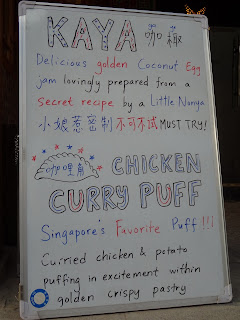 KAYA 咖椰
Delicious golden Coconut Egg
jam lovingly prepared from a
secret recipe by a Little Nonya
小娘惹密制 不可不试 MUST TRY!
咖哩角 CHICKEN
CURRY PUFF
Singapore's Favorite Puff!!!
Curried chicken & potato
puffing in excitement within
golden crispy pastry